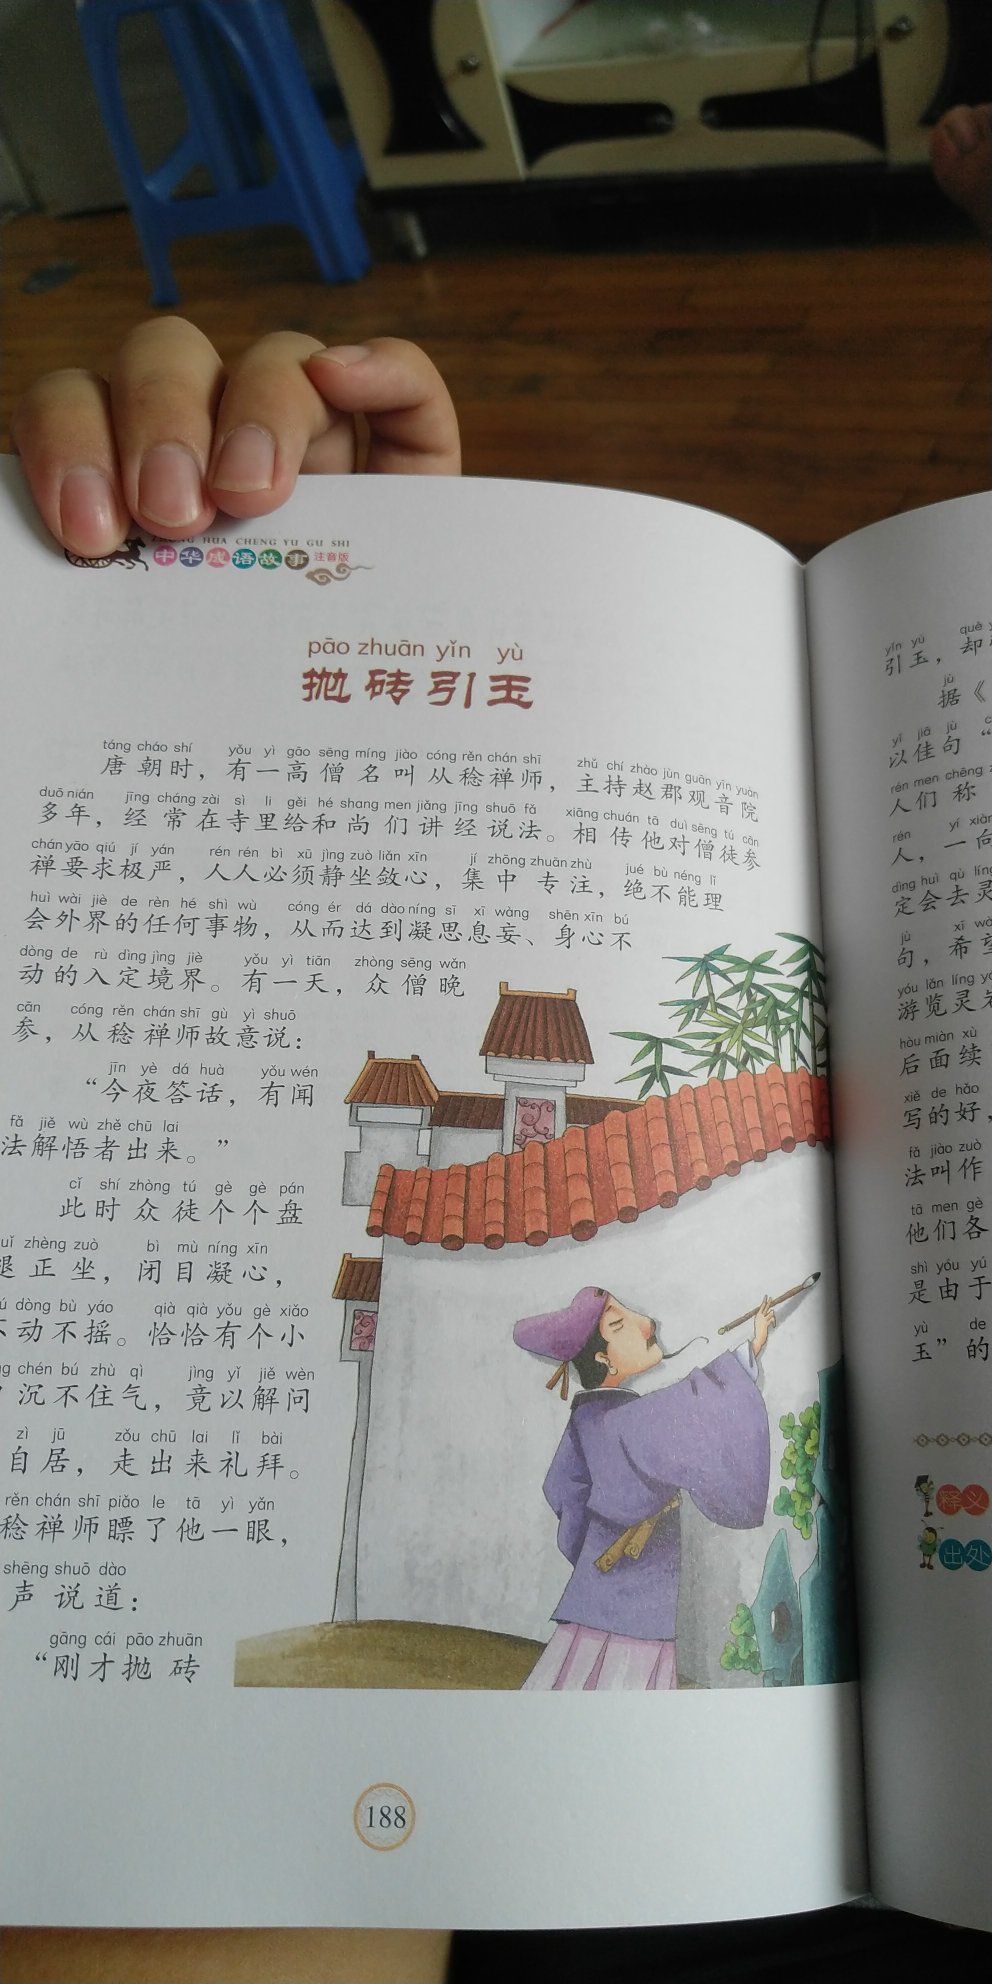 ZHONG HUA CHENG YU GU SHI
中华成语故事 注音版
pāo zhuān yǐn yù
抛砖引玉
táng cháo shí yǒu yì gāo sēng míng jiào cóng rěn chán shī zhǔ chí zhào jùn guān yīn yuàn
唐朝时，有一高僧名叫从稔禅师，主持赵郡观音院
duō nián jīng cháng zài sì li gěi hé shang men jiǎng jīng shuō fǎ xiāng chuán tā duì sēng tú cān
多年，经常在寺里给和尚们讲经说法。相传他对僧徒参
chán yāo qiú jí yán rén rén bì xū jìng zuò liǎn xīn jí zhōng zhuān zhù jué bù néng lǐ
禅要求极严，人人必须静坐敛心，集中专注，绝不能理
huì wài jiè de rèn hé shì wù cóng ér dá dào níng sī xī wàng shēn xīn bú
会外界的任何事物，从而达到凝思息妄、身心不
dòng de rù dìng jìng jiè yǒu yì tiān zhòng sēng wǎn
动的入定境界。有一天，众僧晚
cān cóng rěn chán shī gù yì shuō
参，从稔禅师故意说：
jīn yè dá huà yǒu wén
“今夜答话，有闻
fǎ jiě wù zhě chū lai
法解悟者出来。”
cǐ shí zhòng tú gè gè pán
此时众徒个个盘
zhèng zuò bì mù níng xīn
正坐，闭目凝心，
dòng bù yáo qià qià yǒu gè xiǎo
不动不摇。恰恰有个小
chén bú zhù qì jìng yǐ jiě wèn
沉不住气，竟以解问
zì jū zǒu chū lai lǐ bài
自居，走出来礼拜。
rěn chán shī piǎo le tā yì yǎn
稔禅师瞟了他一眼，
shēng shuō dào
声说道：
gāng cái pāo zhuān
“刚才抛砖
188
yǐn yù què
引玉，却
jù
据《
yǐ jiā jù
以佳句“
rén men chēng
人们称
rén yí xiàng
人，一向
dìng huì qù líng
定会去灵
jù xī wàng
句，希望
yóu lǎn líng
游览灵
hòu miàn xù
后面续
xiě de hǎo
写的好，
fǎ jiào zuò
法叫作
tā men gè
他们各
shì yóu yú
是由于
yù de
玉”的
释义
出处